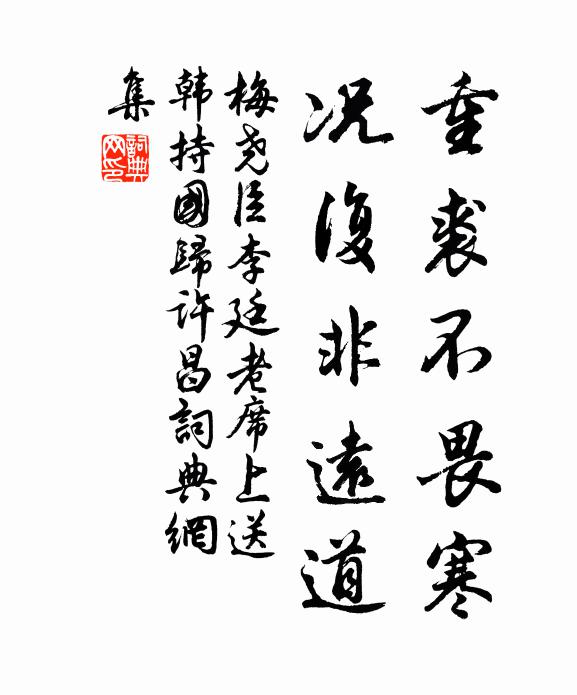 重裘不畏寒
况復非遠道
梅尧臣李廷老席上送
韩持國歸许昌詞典網
集
詞典
网印